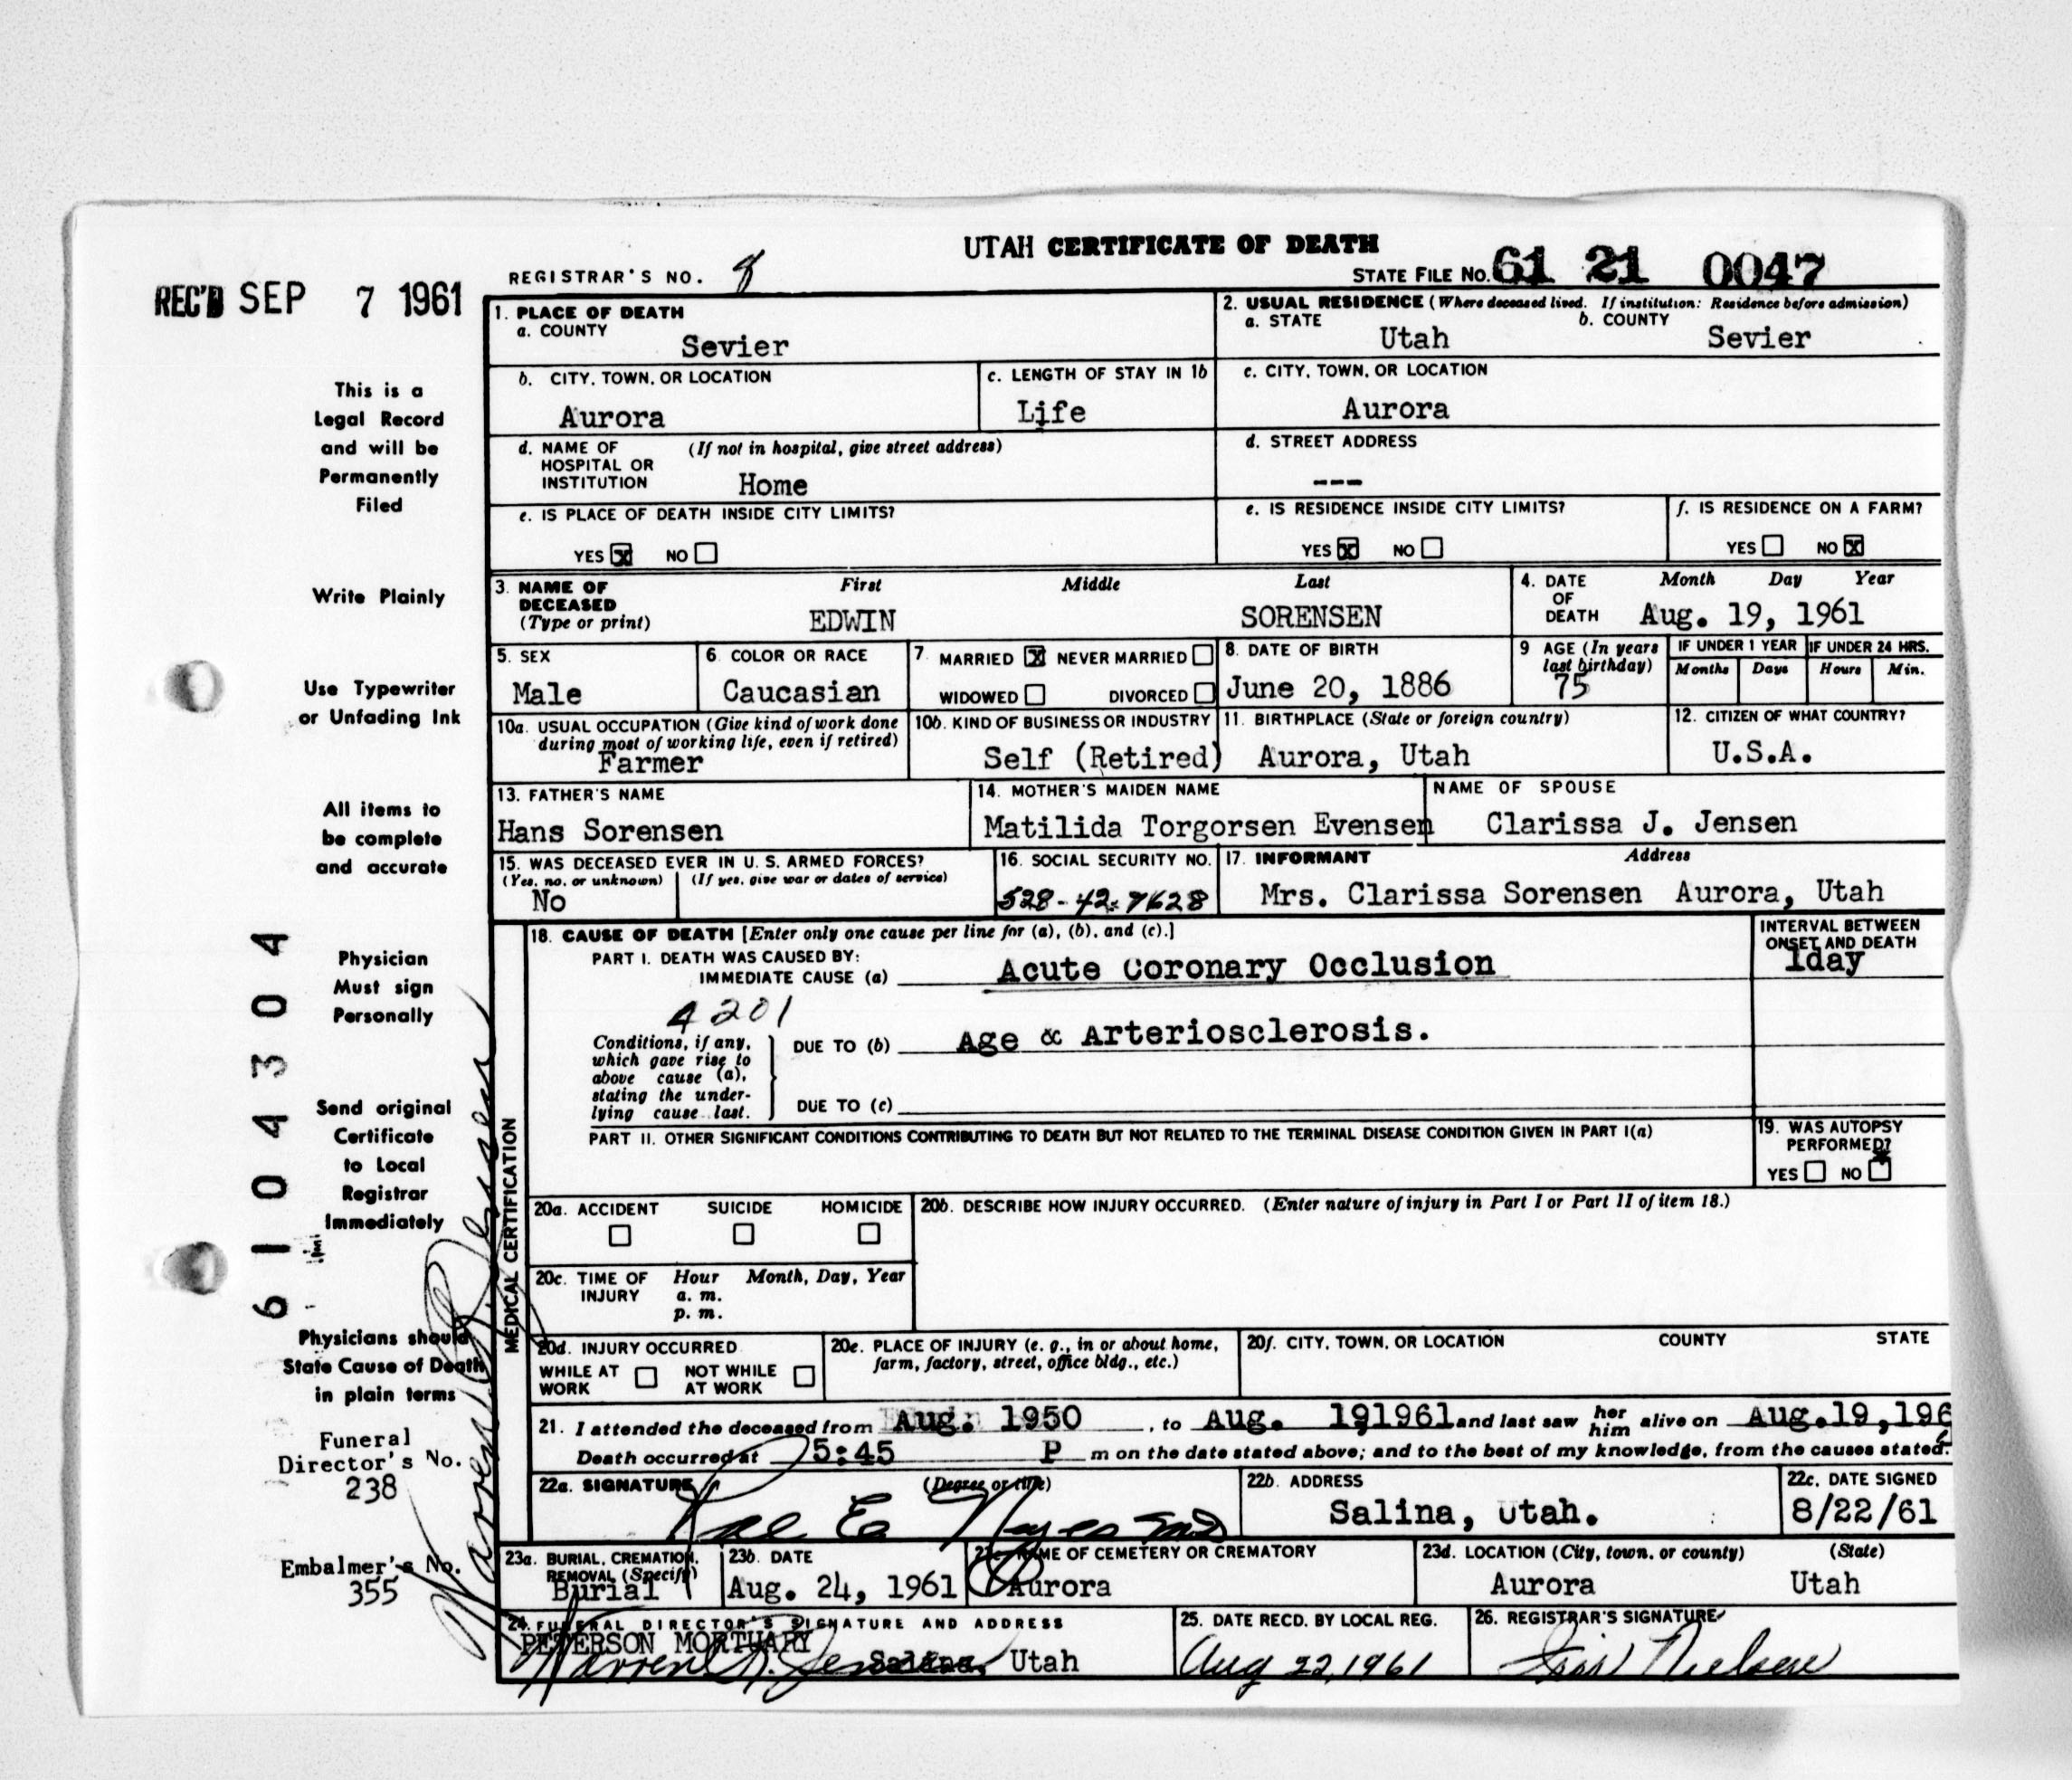 UTAH CERTIFICATE OF DEATH
REC'D SEP 7 1961
REGISTRAR'S NO. 8
STATE FILE No. 61 21 0047
1. PLACE OF DEATH
a. COUNTY
Sevier
2. USUAL RESIDENCE (Where deceased lived. If institution: Residence before admission)
a. STATE Utah b. COUNTY Sevier
b. CITY, TOWN, OR LOCATION
Aurora
c. LENGTH OF STAY IN 1b
Life
c. CITY, TOWN, OR LOCATION
Aurora
d. NAME OF HOSPITAL OR INSTITUTION (If not in hospital, give street address)
Home
d. STREET ADDRESS
---
e. IS PLACE OF DEATH INSIDE CITY LIMITS?
YES X NO
e. IS RESIDENCE INSIDE CITY LIMITS?
YES X NO
f. IS RESIDENCE ON A FARM?
YES NO X
3. NAME OF DECEASED (Type or print)
First Middle Last
EDWIN SORENSEN
4. DATE OF DEATH Month Day Year
Aug. 19, 1961
5. SEX
Male
6. COLOR OR RACE
Caucasian
7. MARRIED X NEVER MARRIED
WIDOWED DIVORCED
8. DATE OF BIRTH
June 20, 1886
9 AGE (In years last birthday)
75
IF UNDER 1 YEAR
Months Days
IF UNDER 24 HRS.
Hours Min.
10a. USUAL OCCUPATION (Give kind of work done during most of working life, even if retired)
Farmer
10b. KIND OF BUSINESS OR INDUSTRY
Self (Retired)
11. BIRTHPLACE (State or foreign country)
Aurora, Utah
12. CITIZEN OF WHAT COUNTRY?
U.S.A.
13. FATHER'S NAME
Hans Sorensen
14. MOTHER'S MAIDEN NAME
Matilida Torgorsen Evensen
NAME OF SPOUSE
Clarissa J. Jensen
15. WAS DECEASED EVER IN U. S. ARMED FORCES?
(Yes, no, or unknown) (If yes, give war or dates of service)
No
16. SOCIAL SECURITY NO.
528-42-7628
17. INFORMANT Address
Mrs. Clarissa Sorensen Aurora, Utah
MEDICAL CERTIFICATION
18. CAUSE OF DEATH [Enter only one cause per line for (a), (b), and (c).]
PART I. DEATH WAS CAUSED BY:
IMMEDIATE CAUSE (a) Acute Coronary Occlusion
INTERVAL BETWEEN ONSET AND DEATH
1day
4201
Conditions, if any, which gave rise to above cause (a), stating the underlying cause last.
DUE TO (b) Age & Arteriosclerosis.
DUE TO (c)
PART II. OTHER SIGNIFICANT CONDITIONS CONTRIBUTING TO DEATH BUT NOT RELATED TO THE TERMINAL DISEASE CONDITION GIVEN IN PART I(a)
19. WAS AUTOPSY PERFORMED?
YES NO
20a. ACCIDENT SUICIDE HOMICIDE
20b. DESCRIBE HOW INJURY OCCURRED. (Enter nature of injury in Part I or Part II of item 18.)
20c. TIME OF INJURY Hour Month, Day, Year
a. m.
p. m.
20d. INJURY OCCURRED
WHILE AT WORK NOT WHILE AT WORK
20e. PLACE OF INJURY (e. g., in or about home, farm, factory, street, office bldg., etc.)
20f. CITY, TOWN, OR LOCATION COUNTY STATE
21. I attended the deceased from Aug. 1950, to Aug. 191961 and last saw her him alive on Aug.19,196
Death occurred at 5:45 P m on the date stated above; and to the best of my knowledge, from the causes stated.
22a. SIGNATURE (Degree or title)
Rae E Noyes MD
22b. ADDRESS
Salina, Utah.
22c. DATE SIGNED
8/22/61
23a. BURIAL, CREMATION, REMOVAL (Specify)
Burial
23b. DATE
Aug. 24, 1961
23c. NAME OF CEMETERY OR CREMATORY
Aurora
23d. LOCATION (City, town, or county) (State)
Aurora Utah
24. FUNERAL DIRECTOR'S SIGNATURE AND ADDRESS
PETERSON MORTUARY
Warren R. Jensen Salina, Utah
25. DATE RECD. BY LOCAL REG.
Aug 22, 1961
26. REGISTRAR'S SIGNATURE
Iris Nielsen
This is a
Legal Record
and will be
Permanently
Filed
Write Plainly
Use Typewriter
or Unfading Ink
All items to
be complete
and accurate
Physician
Must sign
Personally
Send original
Certificate
to Local
Registrar
Immediately
Physicians should
State Cause of Death
in plain terms
Funeral
Director's No.
238
Embalmer's No.
355
61 04304
Warren R. Jensen